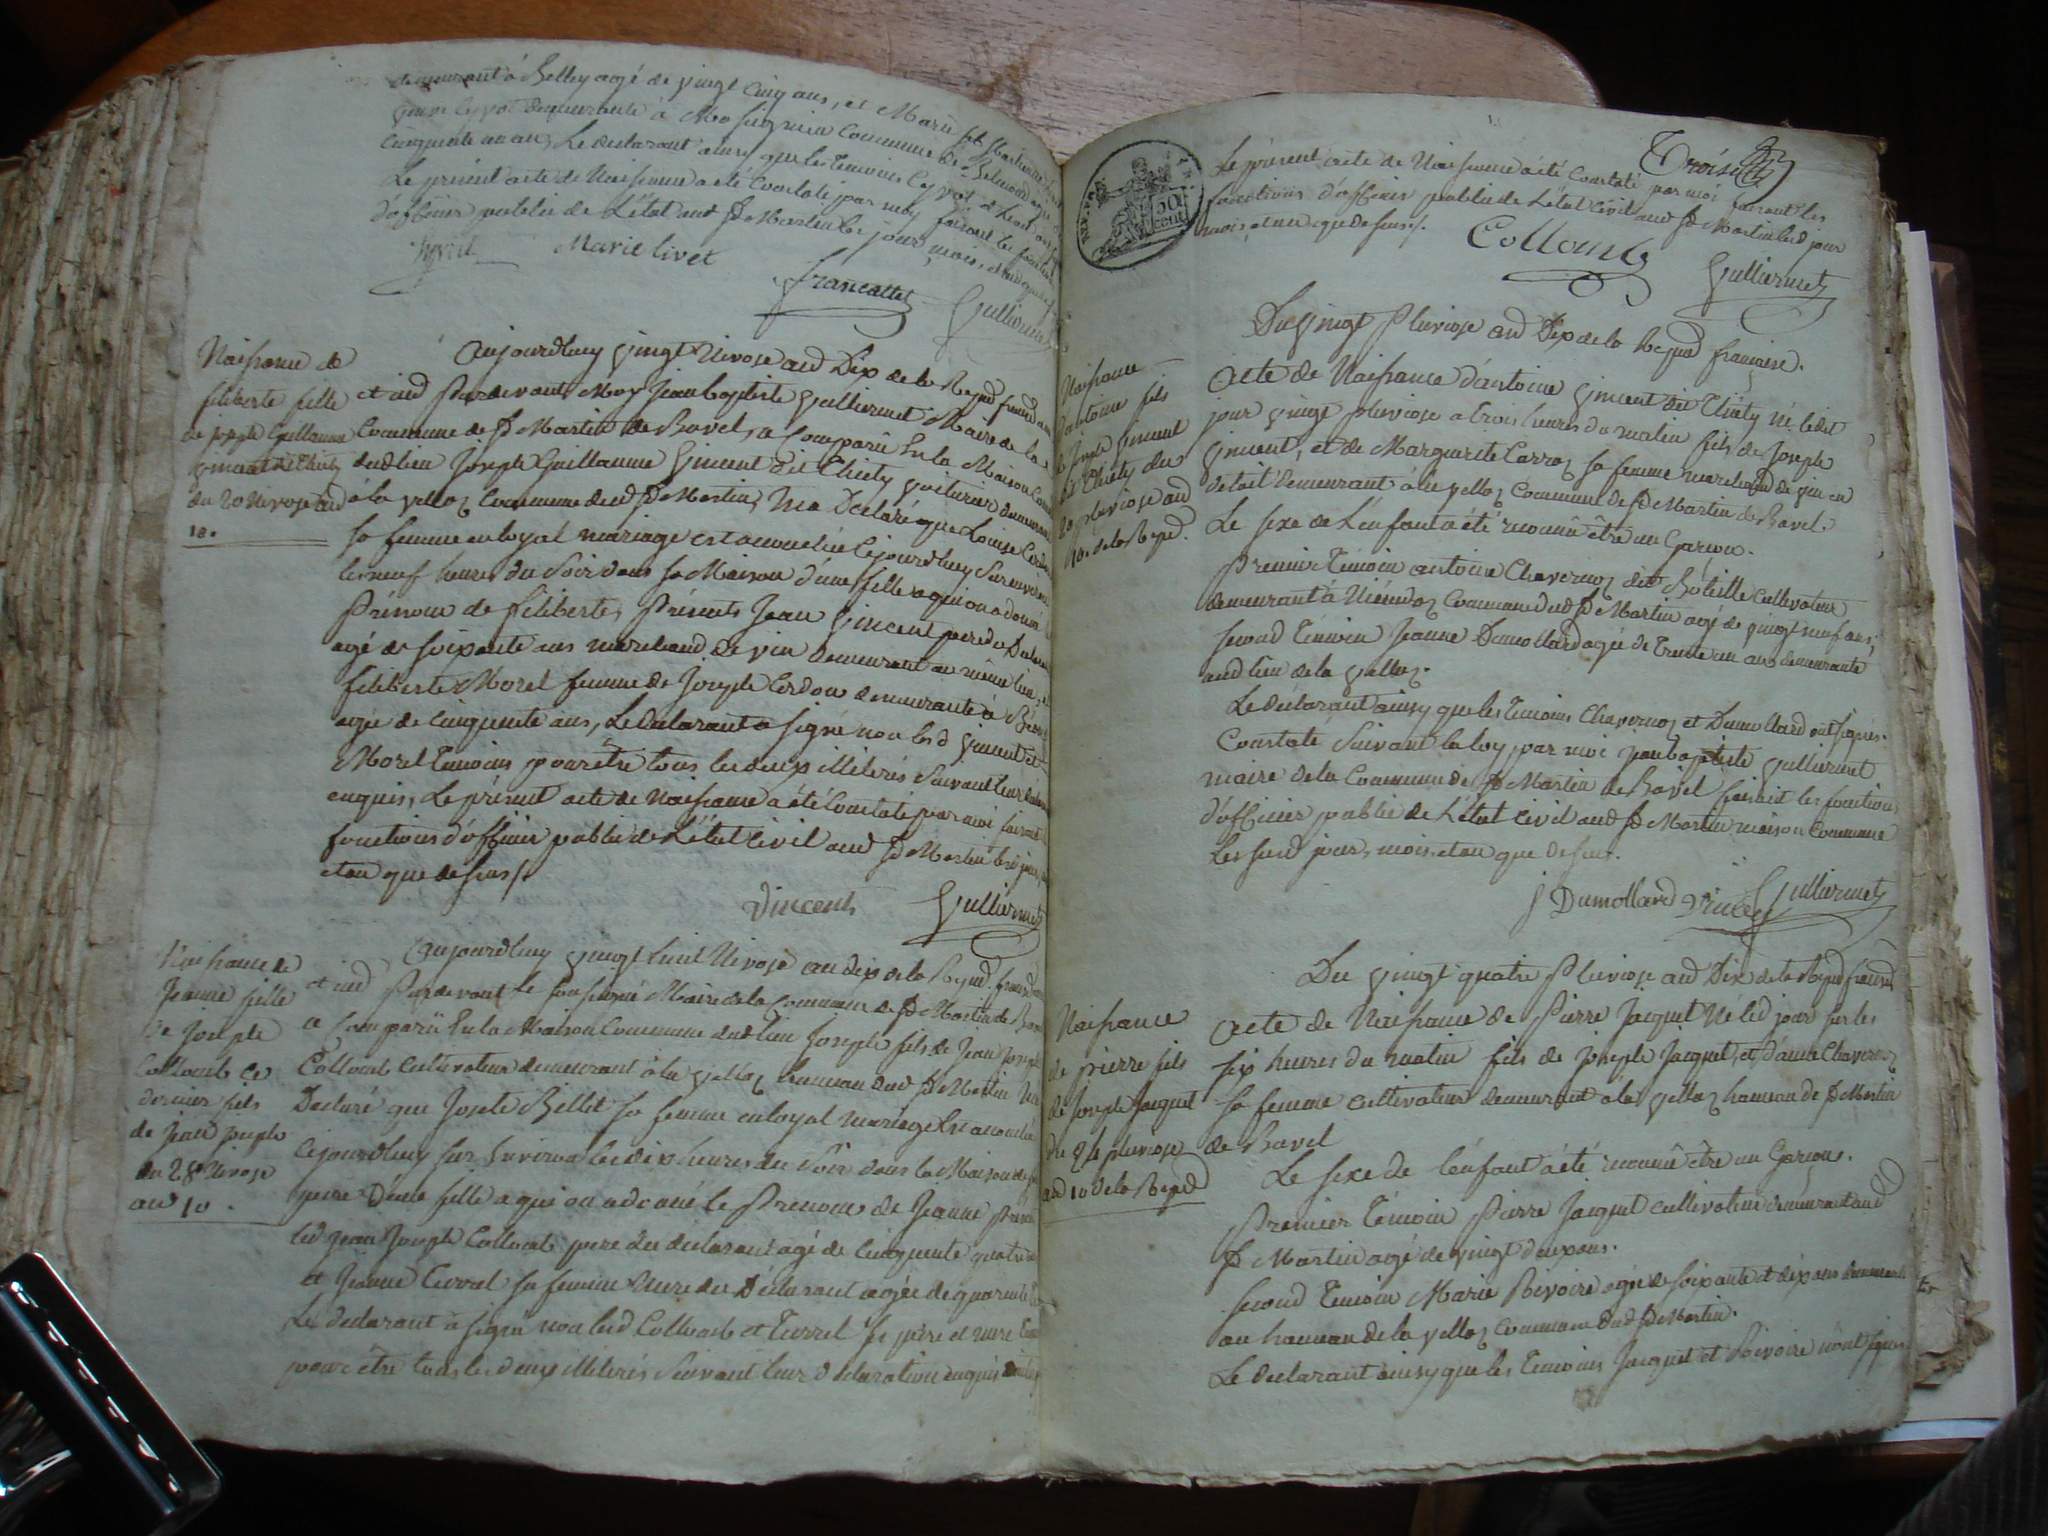 demeurant à Belley agé de vingt cinq ans, et Marie
demeurante à commune de Belmond agée
cinquante un an, Le declarant ainsy que les temoins
Le présent acte de Naissance a été Constaté par moy faisant les fonctions
d'officier public de L'état aud St Martin les jour, mois, et an que dessus
Marie livet
francallet
Gulliermet
Naissance de
filiberte fille
de joseph Guillaume
vincent dit Thiety
du 20 Nivose an
10.
Aujourdhuy vingt Nivose and Dix de la Repud
Pardevant Moy Jean baptiste Gulliermet Maire de la
Commune de St Martin de Bavel, a Comparû En la Maison
dud lieu Joseph Guillaume Vincent dit Thiety voiturier
à la vellaz Commune dud St Martin, Ma Declaré que Louise
sa femme en loyal mariage est accouchée Cejourdhuy Sur environ
les neuf heures du Soir dans sa Maison d'une fille a qui on a donné
Prénom de filiberte, Présents Jean Vincent pere du
agé de soixante ans marchand de vin demeurant au même lieu,
filiberte Morel femme de Joseph Cerdon demeurante à
agée de cinquante ans, Le declarant a signé non led vincent et
Morel temoins pour être tous les deux illiterés Suivant leur
enquis, Le présent acte de Naissance a été Constaté par moi faisant
fonctions d'officier public de L'état Civil aud St Martin les jour,
et an que dessus /.
Vincent Gulliermet
Naissance de
Jeanne fille
de Joseph
Collomb ce
dernier fils
de Jean joseph
du 28e Nivose
an 10.
Aujourdhuy vingt huit Nivose an dix de la Repud.
Pardevant Le soussigné Maire de la Commune de St Martin de
a Comparû En la Maison Commune dud lieu Joseph fils de Jean Joseph
Collomb Cultivateur demeurant à la vellaz hameau dud St Martin
Declaré que Josete Billet sa femme en loyal mariage Est accouchée
Cejourdhuy sur Environ les dix heures du Soir dans la Maison de
pere D'une fille a qui on a donné le Prenom de Jeanne
led Jean Joseph Collomb pere du declarant agé de cinquante quatre
et Jeanne sa femme Mere du Déclarant agée de quarante
Le declarant à signé non led Collomb et se père et mere
pour être tous les deux illiterés Suivant leur declaration enquis
Trois
Le présent acte de Naissance a été Constaté par moi faisant les
fonctions d'officier public de L'état Civil aud St Martin led jour
mois, et an que dessus /.
50
cent
Collomb
Gulliermet
Du vingt Pluviose and Dix de la Repud française.
Naissance
d'antoine fils
de Joseph vincent
dit Thiety du
20 pluviose and
10. de la Repud.
Acte de Naissance d'antoine vincent dit Thiéty né ledit
jour vingt pluviose à trois heures du matin fils de Joseph
vincent, et de Marguerite Carraz sa femme marchand de vin en
detail demeurant à la vellaz Commune de St Martin de Bavel.
Le sexe de L'enfant a été reconnû être un Garçon.
Premier temoin antoine Chavernoz dit Boteille Cultivateur
demeurant à Commune dud St Martin agé de vingt neuf ans,
second temoin Jeanne Dumollard agée de Trente un ans demeurante
aud lieu de la vellaz.
Le déclarant ainsy que les temoins Chavernoz et Dumollard ont signés.
Constaté Suivant la loy par moi jean baptiste gulliermet
maire de la Commune de St Martin de Bavel faisant les fonctions
d'officier public de L'état Civil aud St Martin maison Commune
Les susd jour, mois, et an que dessus.
J Dumollard Gulliermet
Du vingt quatre Pluviose and Dix de la Repud
Naissance
de pierre fils
de Joseph Jacquet
du 24 pluviose
and 10 de la Repud
Acte de Naissance de Pierre Jacquet Né led jour sur les
six heures du matin fils de joseph Jacquet, et d'anne Chavernoz
sa femme cultivateur demeurant à la vellaz hameau de St Martin
de Bavel
Le sexe de l'enfant a été reconnû être un Garçon.
Premier temoin Pierre Jacquet cultivateur demeurant aud
St Martin agé de vingt deux ans.
second temoin Marie Rivoire agée de soixante et dix ans demeurante
au hameau de la vellaz commune dud St Martin.
Le declarant ainsy que les temoins Jacquet et Rivoire n'ont signés